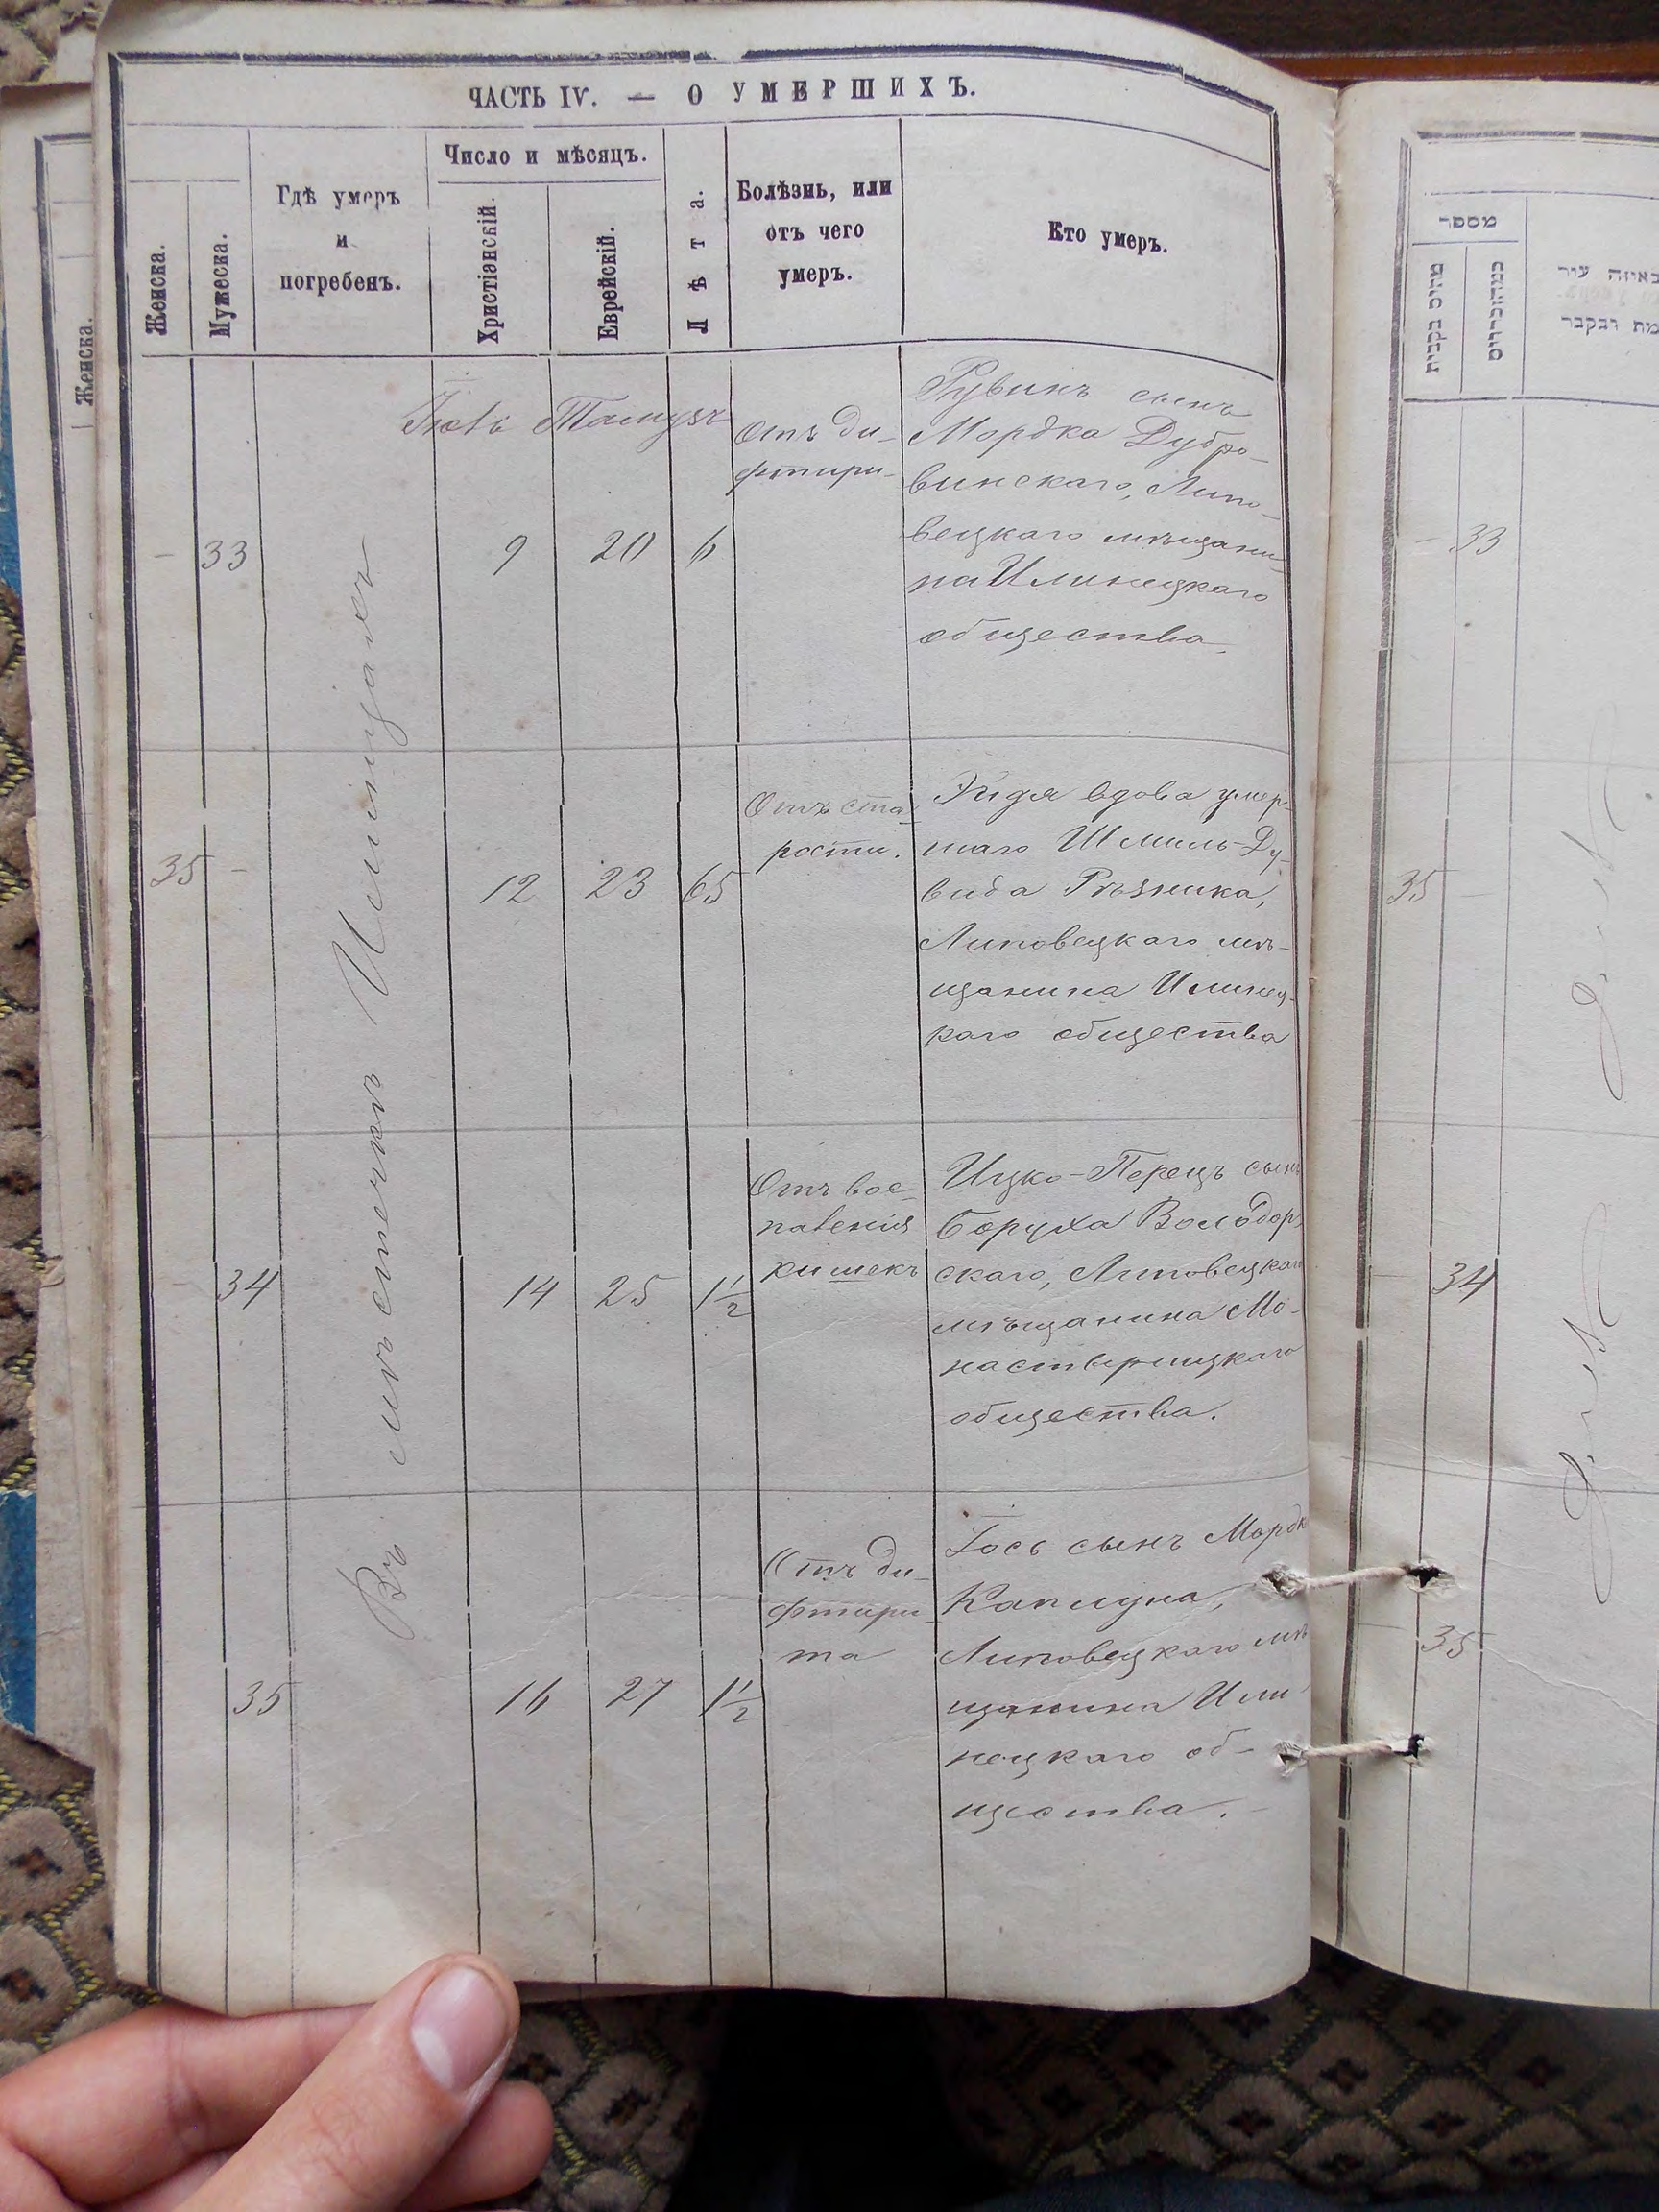 ЧАСТЬ IV. — О УМЕРШИХЪ.
Женска.
Мужеска.
Гдѣ умеръ
и
погребенъ.
Число и мѣсяцъ.
Христіанскій.
Еврейскій.
Лѣта.
Болѣзнь, или
отъ чего
умеръ.
Кто умеръ.
Въ мѣстечкѣ Илинцахъ
Тамузъ
— 33
9 20 6
Отъ ди-
фтири-
Рувинъ сынъ
Мордка Дубро-
винскаго, Липо-
вецкаго мѣщани-
на Илинецкаго
общества.
35 —
12 23 65
Отъ ста-
рости.
Эйдя вдова умер-
шаго Шмиль-Ду-
вида Рѣзника,
Липовецкаго мѣ-
щанина Илинец-
каго общества
34
14 25 1 1/2
Отъ вос-
паленія
кишекъ
Ицко-Перецъ сынъ
Боруха Володар-
скаго, Липовецкаго
мѣщанина Мо-
настырищкаго
общества.
35
16 27 1 1/2
Отъ ди-
фтири-
та
Іось сынъ Мордк
Каплуна,
Липовецкаго мѣ
щанина Или
нецкаго об-
щества.
Женска.
מספר
באיזה עיר
מת ונקבר
— 33
35 —
— 34
— 35